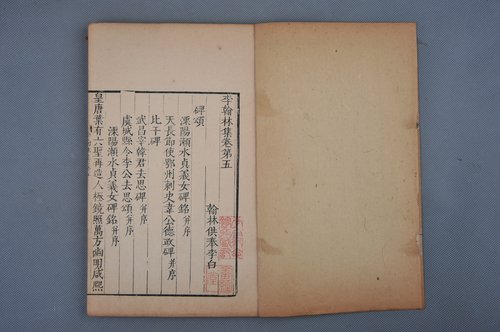 李翰林集卷第五
翰林供奉李白
碑頌
溧陽瀨水貞義女碑銘并序
天長節使鄂州刺史韋公德政碑并序
比干碑
武昌宰韓君去思碑并序
虞城縣令李公去思頌并序
溧陽瀨水貞義女碑銘并序
皇唐葉有六聖再造八極鏡照萬方幽明咸熙